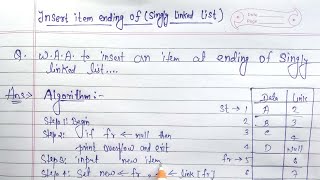 Insert item ending of (Singly Linked List)
Q. W.A.A. to insert an item at ending of Singly
linked list....
Ans→ Algorithm:-
Data Link
St → 1 A 2
Step 1: Begin 2 B 3
Step 2: if fr ← null then 3 C 4
print overflow and exit 4 D Null
Step 3: input new item fr → 5 6
Step 4: Set new ← fr ← link [fr] 6 7